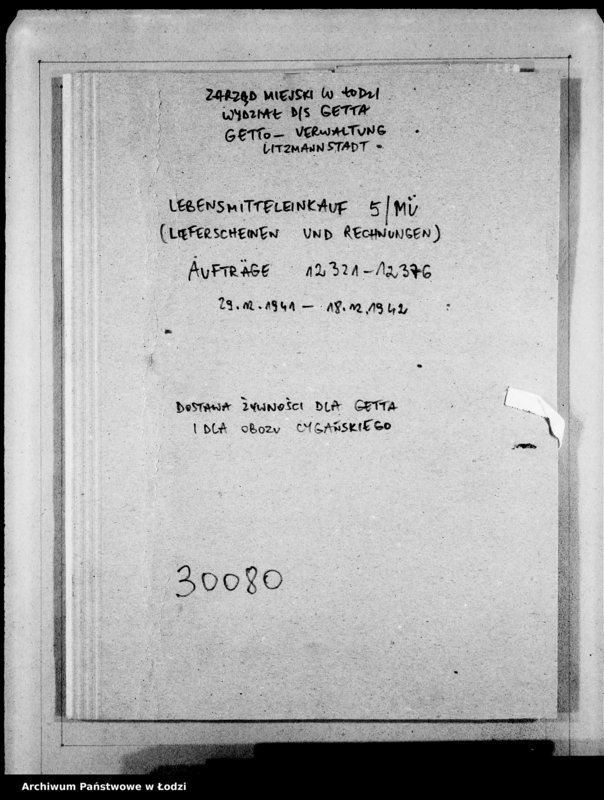 ZARZĄD MIEJSKI W ŁODZI
WYDZIAŁ D/S GETTA
GETTO – VERWALTUNG
LITZMANNSTADT
LEBENSMITTELEINKAUF 5/MÜ
(LIEFERSCHEINEN UND RECHNUNGEN)
AUFTRÄGE 12321–12376
29.12.1941 – 18.12.1942
DOSTAWA ŻYWNOŚCI DLA GETTA
I DLA OBOZU CYGAŃSKIEGO
30080
Archiwum Państwowe w Łodzi